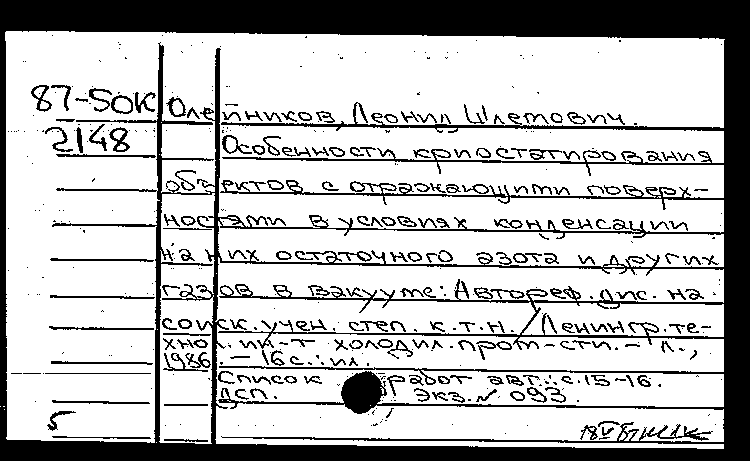 87-50К Олейников, Леонид Шлемович.
2148 Особенности криостатирования
объектов с отражающими поверх-
ностями в условиях конденсации
на них остаточного азота и других
газов в вакууме: Автореф. дис. на
соиск. учен. степ. к.т.н. / Ленингр. те-
хнол. ин-т холодил. пром-сти. – Л.,
1986. – 16 с.: ил.
Список работ авт.: с. 15-16.
ДСП. Экз. № 093.
5 18 V 87